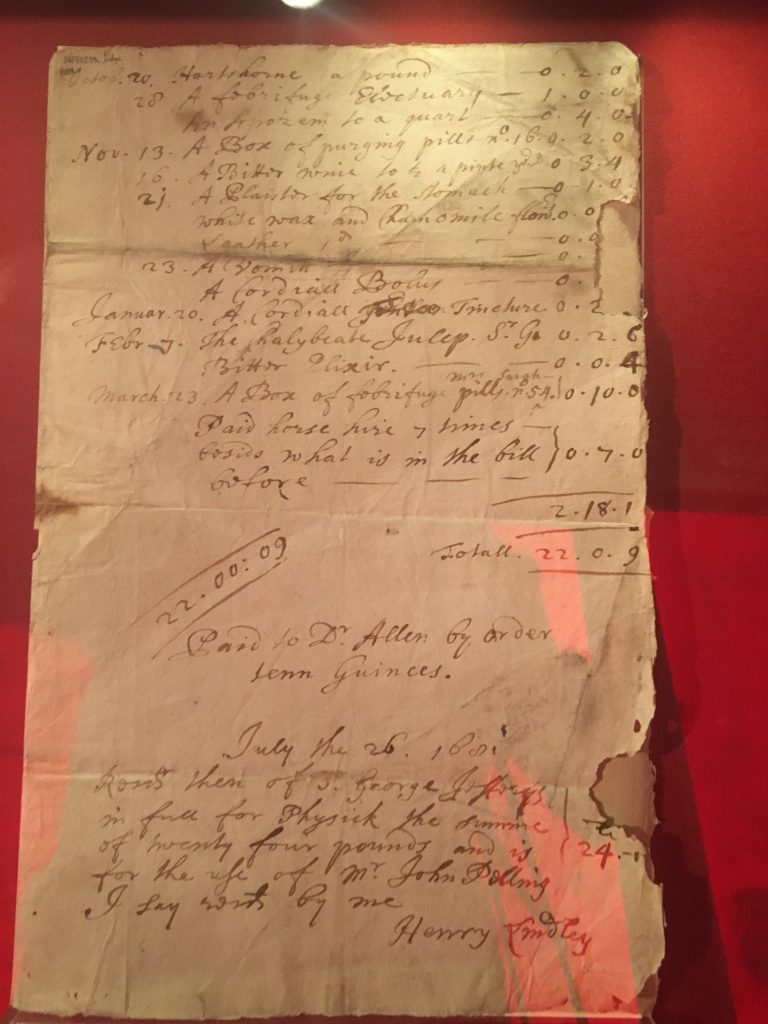 Octob. 20. Hartshorne a pound — 0 . 2 . 0
28 A febrifuge Electuary — 1 . 0 . 0
An Apozem to a quart — 0 . 4 . 0
Nov. 13. A Box of purging pills no. 16. 0 . 2 . 0
16. A Bitter wine to a pinte 0 . 3 . 4
21. A Plaister for the Stomach — 0 . 1 . 0
white wax and Chamomile flowrs. 0 . 0
Leather 1d — — 0 . 0
23. A Vomitt — 0 .
A Cordiall Bolus — 0 .
Januar. 20. A Cordiall Tincture. 0 . 2
Febr. 7. The Chalybeate Julep. Sr. G. 0 . 2 . 6
Bitter Elixir. — 0 . 0 . 4
mrs Sarah
March. 23 A Box of febrifuge pills. no. 54. 0 . 10 . 0
Paid horse hire 7 times —
besids what is in the bill } 0 . 7 . 0
before — — —
2 . 18 . 1
Totall. 22 . 0 . 9
22 . 00 : 09
Paid to Dr. Allen by order
tenn Guinees.
July the 26. 1681
Received then of Sr. George Jefferys
in full for Physick the summe
of twenty four pounds and is 24
for the use of Mr John Polling
I say received by me
Henry Lindley